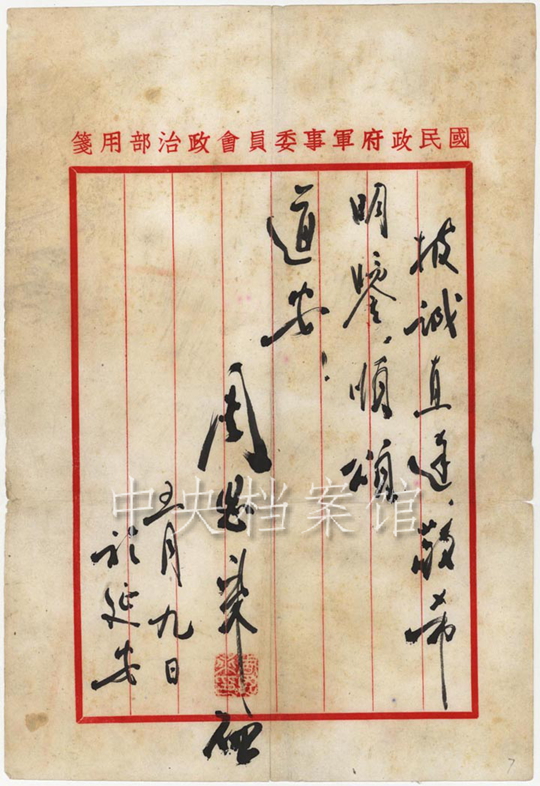 國民政府軍事委員會政治部用箋
披誠直達、敬希
明鑒、順頌
道安！
周恩來
五月九日
於延安
中央档案馆
7